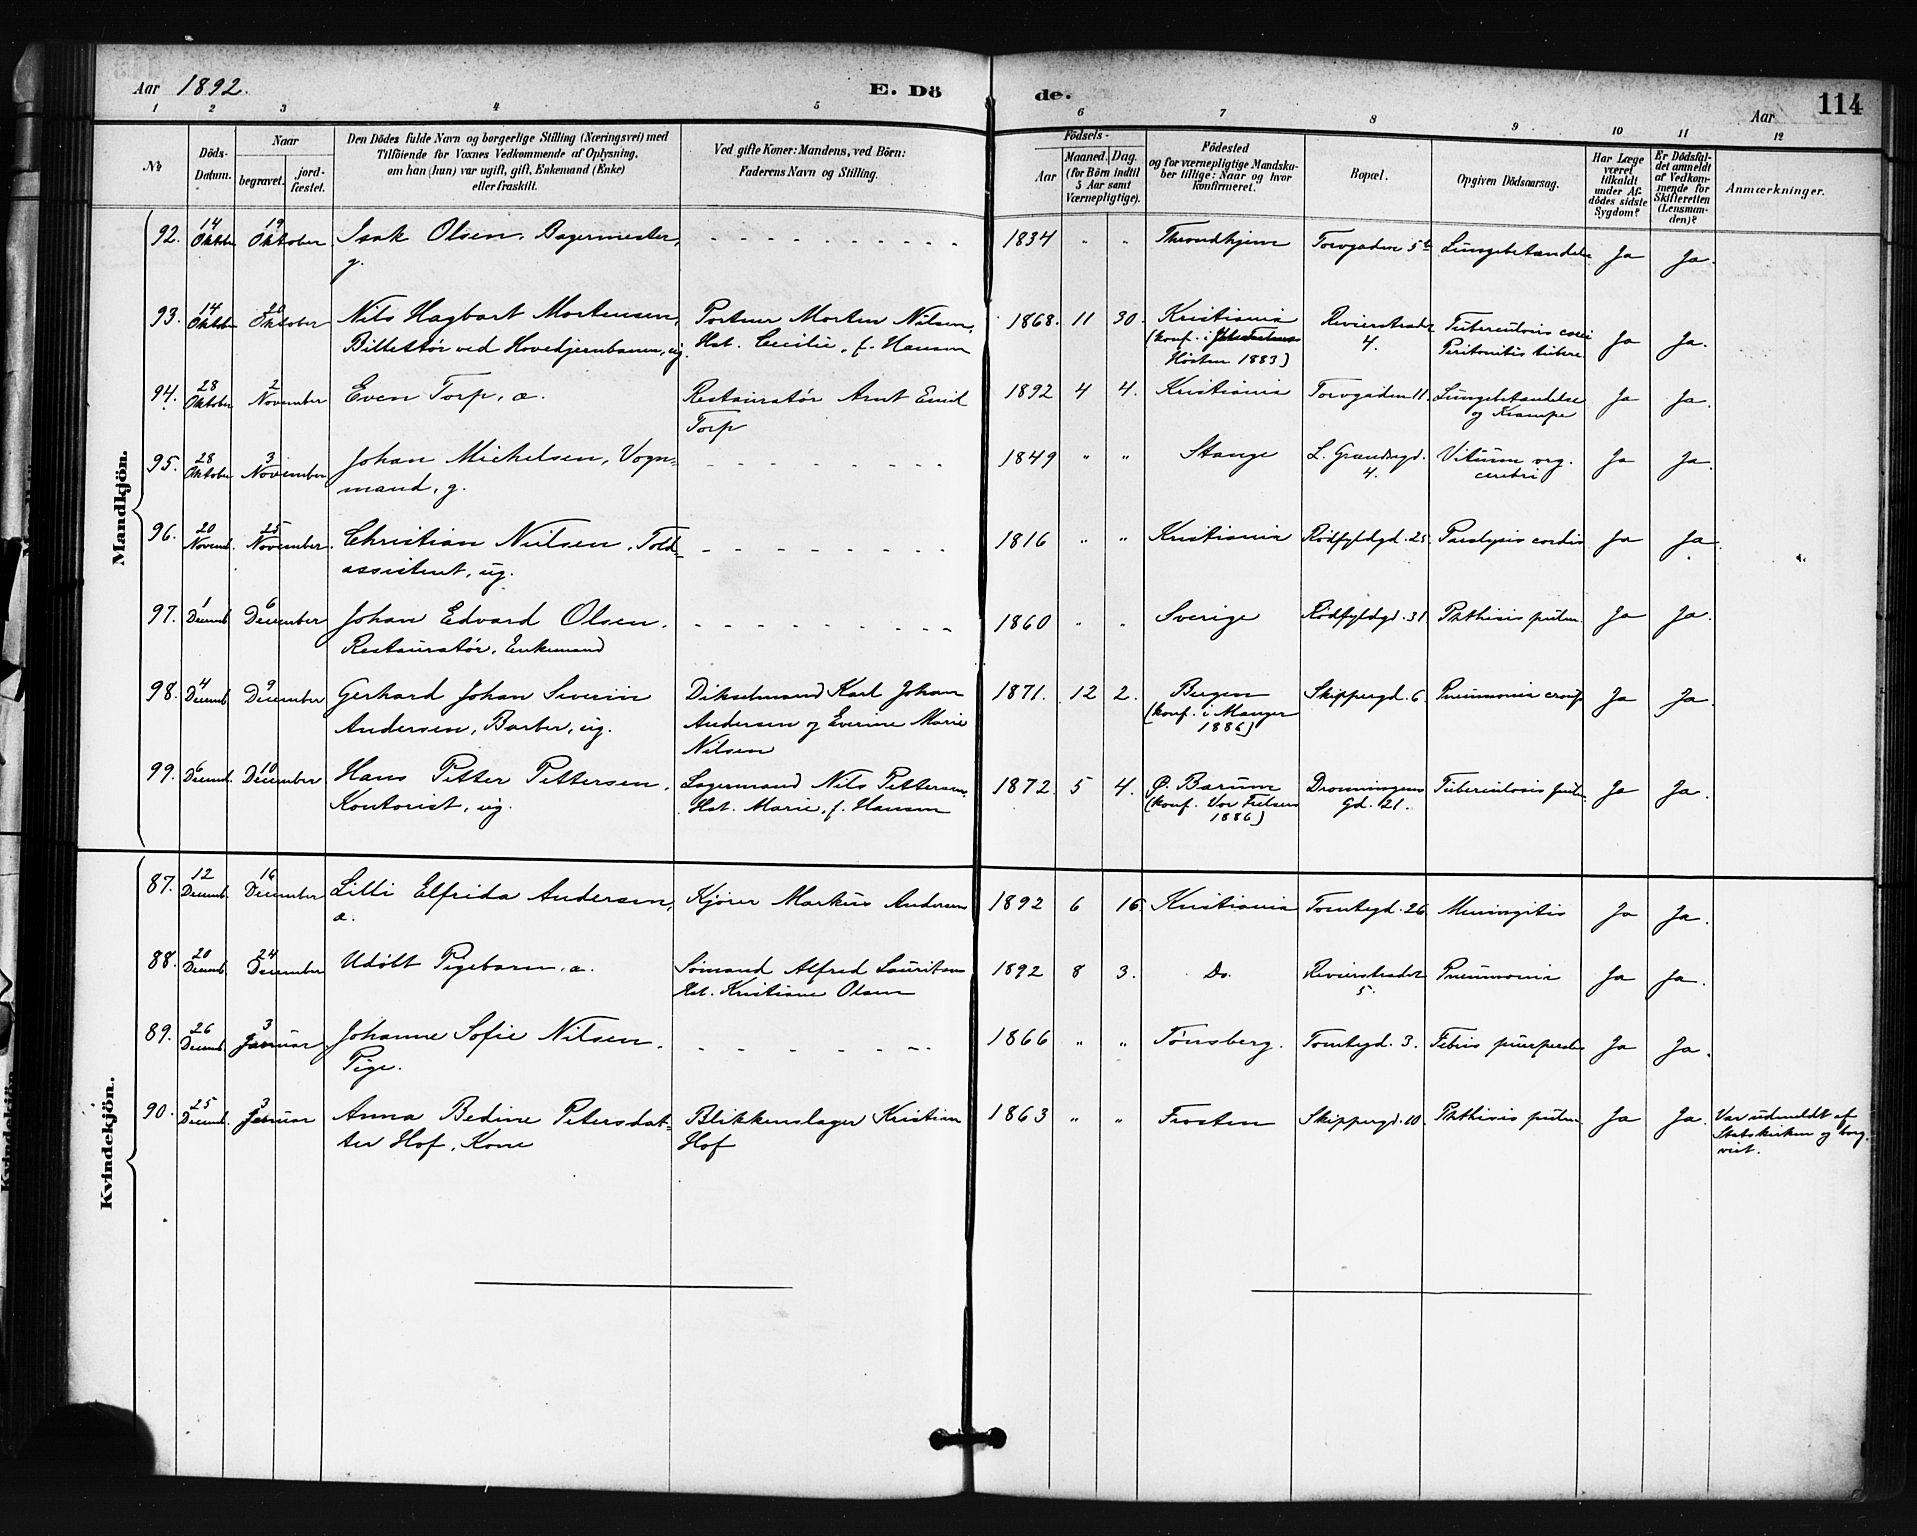 Aar 1892. E. Dö de. Aar 114
1 2 3 4 5 6 7 8 9 10 11 12
No
Döds-Datum.
Naar
begravet.
jord-fæstet.
Den Dödes fulde Navn og borgerlige Stilling (Næringsvei) med
Tilföiende for Voxnes Vedkommende af Oplysning,
om han (hun) var ugift, gift, Enkemand (Enke)
eller fraskilt.
Ved gifte Koner: Mandens, ved Börn:
Faderens Navn og Stilling.
Födsels-
Aar
Maaned. Dag.
(for Börn indtil
5 Aar samt
Værnepligtige).
Födested
og for værnepligtige Mandska-
ber tillige: Naar og hvor
konfirmeret.
Bopæl.
Opgiven Dödsaarsag.
Har Læge
været
tilkaldt
under Af-
dödes sidste
Sygdom?
Er Dödsfal-
det anmeldt
af Vedkom-
mende for
Skifteretten
(Lensman-
den)?
Anmærkninger.
Mandkjön.
92. 14 Oktober 19 Oktober Isak Olsen, Bagermester, 1834 " " Throndhjem Torvgaden 5b Lungebetændelse Ja Ja.
g.
93. 14 Oktober 20 Oktober Nils Hagbart Mortensen, Portner Morten Nilsen, 1868. 11 30. Kristiania Revierstrædet Tuberculosis Ja Ja.
Billettör ved Hovedjernbanen, ug. Hst. Cecilie, f. Hansen (konf. i 4. Peritonitis
Høsten 1883)
94. 28 Oktober 2 November Even Torp, a. Restauratør Arnt Emil 1892 4 4. Kristiania Torvgaden 11. Lungebetændelse Ja Ja.
Torp og Krampe
95. 28 Oktober 3 November Johan Michelsen, Vogn- 1849 " " Stange L. Grændsegd. Vitium org. Ja Ja.
mand, g. 4. cerebri
96. 20 Novemb. 25 November Christian Nilsen, Told- 1816 " " Kristiania Rödfyldgd. 25 Paralysis cordis Ja Ja.
assistent, ug.
97. 1 Decemb. 6 December Johan Edvard Olsen. 1860 " " Sverige Rödfyldgd. 31 Phthisis pulm. Ja Ja.
Restauratør, Enkemand
98. 4 Decemb. 9 December Gerhard Johan Severin Dikselmand Karl Johan 1871. 12 2. Bergen Skippergd. 6 Pneumonia croup Ja Ja.
Andersen, Barber, ug. Andersen og Everine Marie (konf. i Manger
Nilsen 1886)
99. 6 Decemb. 10 December Hans Petter Pettersen. Lagermand Nils Pettersen, 1872. 5 4. Ø. Bærum Dronningens Tuberculosis pulm. Ja Ja.
Kontorist, ug. Hst. Marie, f. Hansen (konf. Vor Frelsers Gd. 21.
1886)
Kvindekjön.
87. 12 Decemb. 16 December Lilli Elfrida Andersen, Kjører Markus Andersen 1892 6 16. Kristiania Tomtegd. 26 Meningitis Ja Ja.
a.
88. 20 Decemb. 24 December Udöbt Pigebarn, a. Sömand Alfred Lauritsen 1892 8 3. Do. Revierstrædet Pneumonia Ja Ja.
Hst. Kristiane Olsen 5.
89. 26 Decemb. 3 Januar Johanne Sofie Nilsen. 1866 " " Tønsberg. Tomtegd. 3. Febris puerperalis Ja Ja.
Pige.
90. 25 Decemb. 3 Januar Anna Bedine Petersdat- Blikkenslager Kristian 1863 " " Frosten Skippergd. 10 Phthisis pulm Ja Ja. Var udmeldt af
ter Hof, Kone Hof Statskirken og borg.
viet.